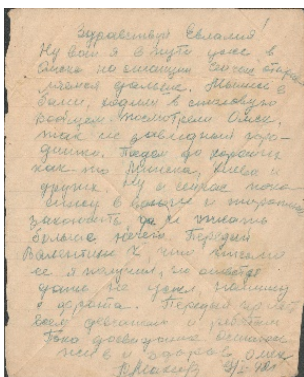 Здравствуй Евлалий!
Ну вот я в пути уже в
Омске на станции сейчас отпра
ляемся дальше. Мылись в
бани, ходили в столовую
Посмотрели Омск,
так не завидный горо-
дишко. Поедем до
как то Минска, Киева и
другие Ну я сейчас пока
сижу в вагоне и
закончить да и писать
больше нечего. Передай
Валентине К, что письмо
ее я получил, но ответ
дать не успел, напишу
с фронта. Передай привет
всем девчатам и ребятам
Пока досвидания остаюсь
жив и здоров
В. Махнев